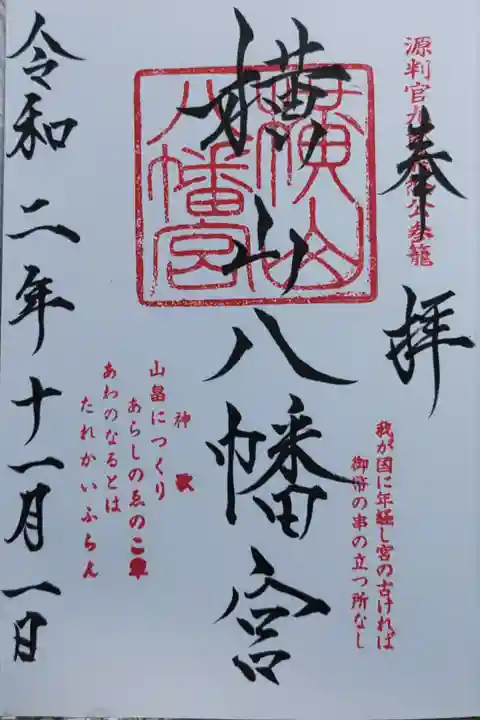 源判官九郎義経公参籠
奉拝
我が国に年経し宮の古ければ
御幣の串の立つ所なし
横山八幡宮
橫山
八幡宮
神歌
山畠につくり
あらしのゑのこ草
あわのなるとは
たれかいふらん
令和二年十一月一日